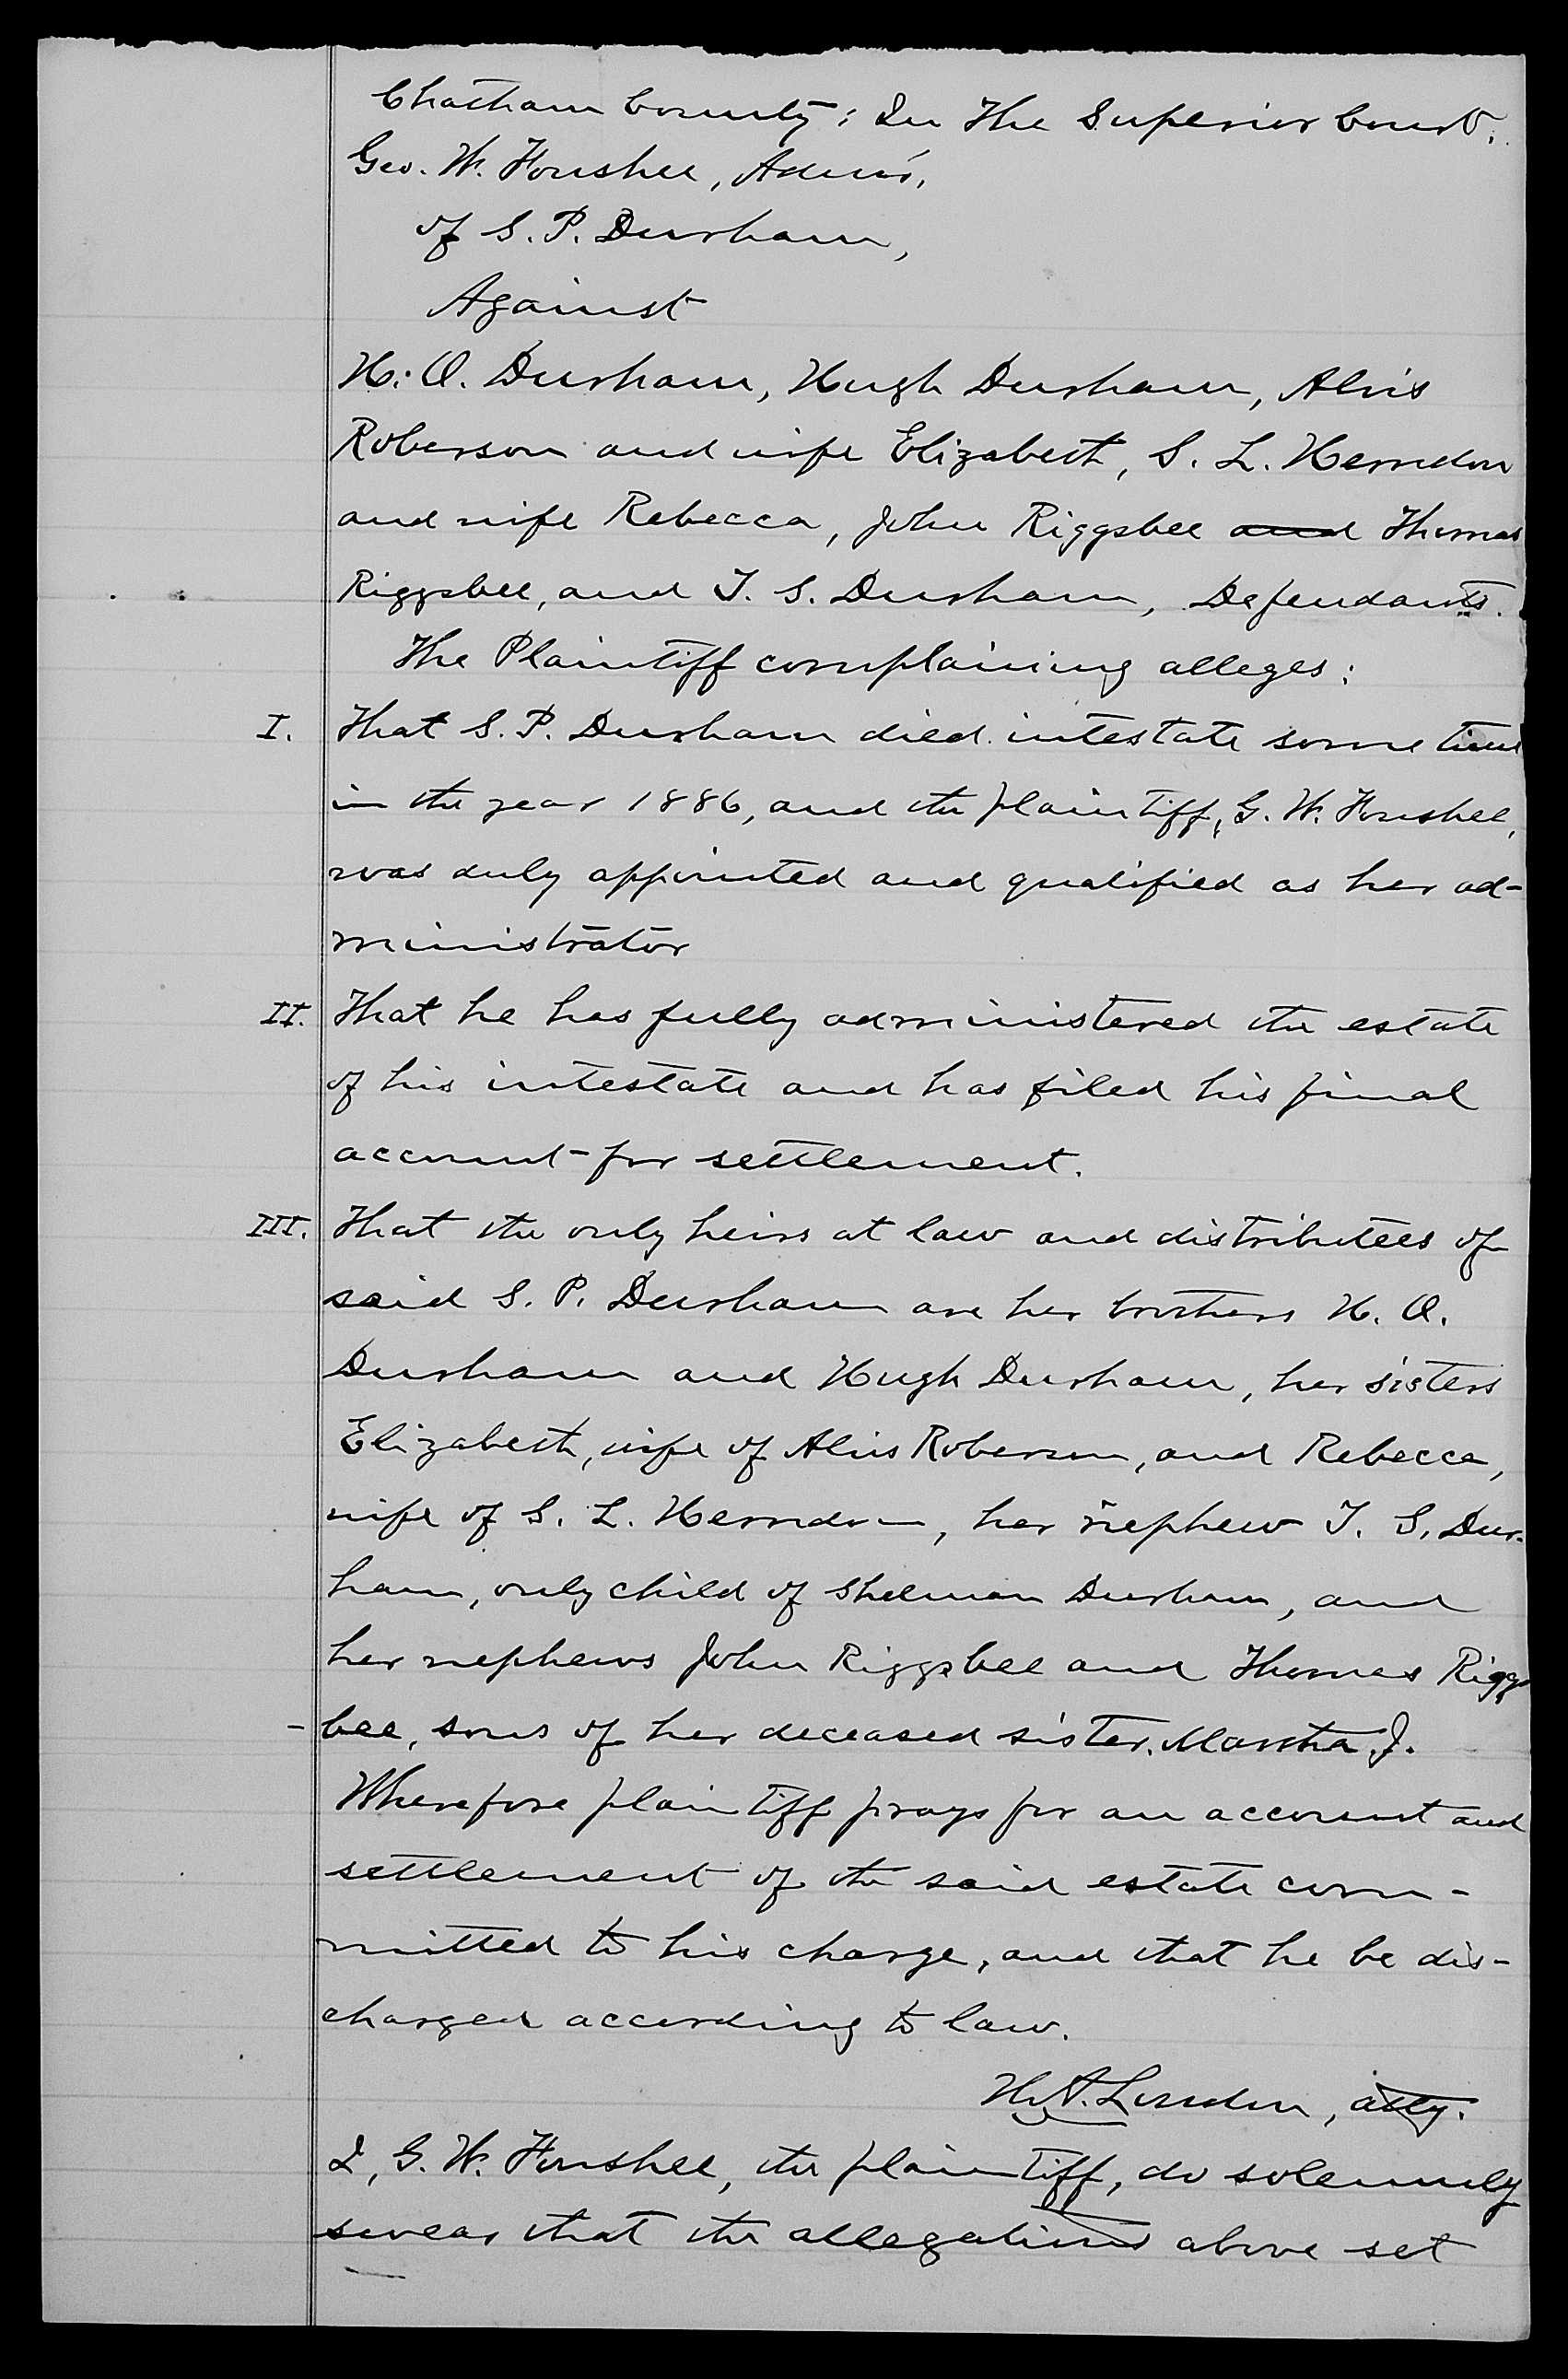 Chatham County: In The Superior Court.
Geo. W. Foushee, Admr.,
of S. P. Durham,
Against
H. Q. Durham, Hugh Durham, Alvis
Roberson and wife Elizabeth, S. L. Herndon
and wife Rebecca, John Riggsbee and Thomas
Riggsbee, and T. S. Durham, Defendants.
The Plaintiff complaining alleges:
I. That S. P. Durham died intestate some time
in the year 1886, and the plaintiff, G. W. Foushee,
was duly appointed and qualified as her ad-
ministrator
II. That he has fully administered the estate
of his intestate and has filed his final
account for settlement.
III. That the only heirs at law and distributees of
said S. P. Durham are her brothers H. Q.
Durham and Hugh Durham, her sisters
Elizabeth, wife of Alvis Roberson, and Rebecca,
wife of S. L. Herndon, her nephew T. S. Dur-
ham, only child of Shelman Durham, and
her nephews John Riggsbee and Thomas Riggs
-bee, sons of her deceased sister, Martha J.
Wherefore plaintiff prays for an account and
settlement of the said estate com-
mitted to his charge, and that he be dis-
charged according to law.
H. A. London, atty.
I, G. W. Foushee, the plaintiff, do solemnly
swear that the allegations above set